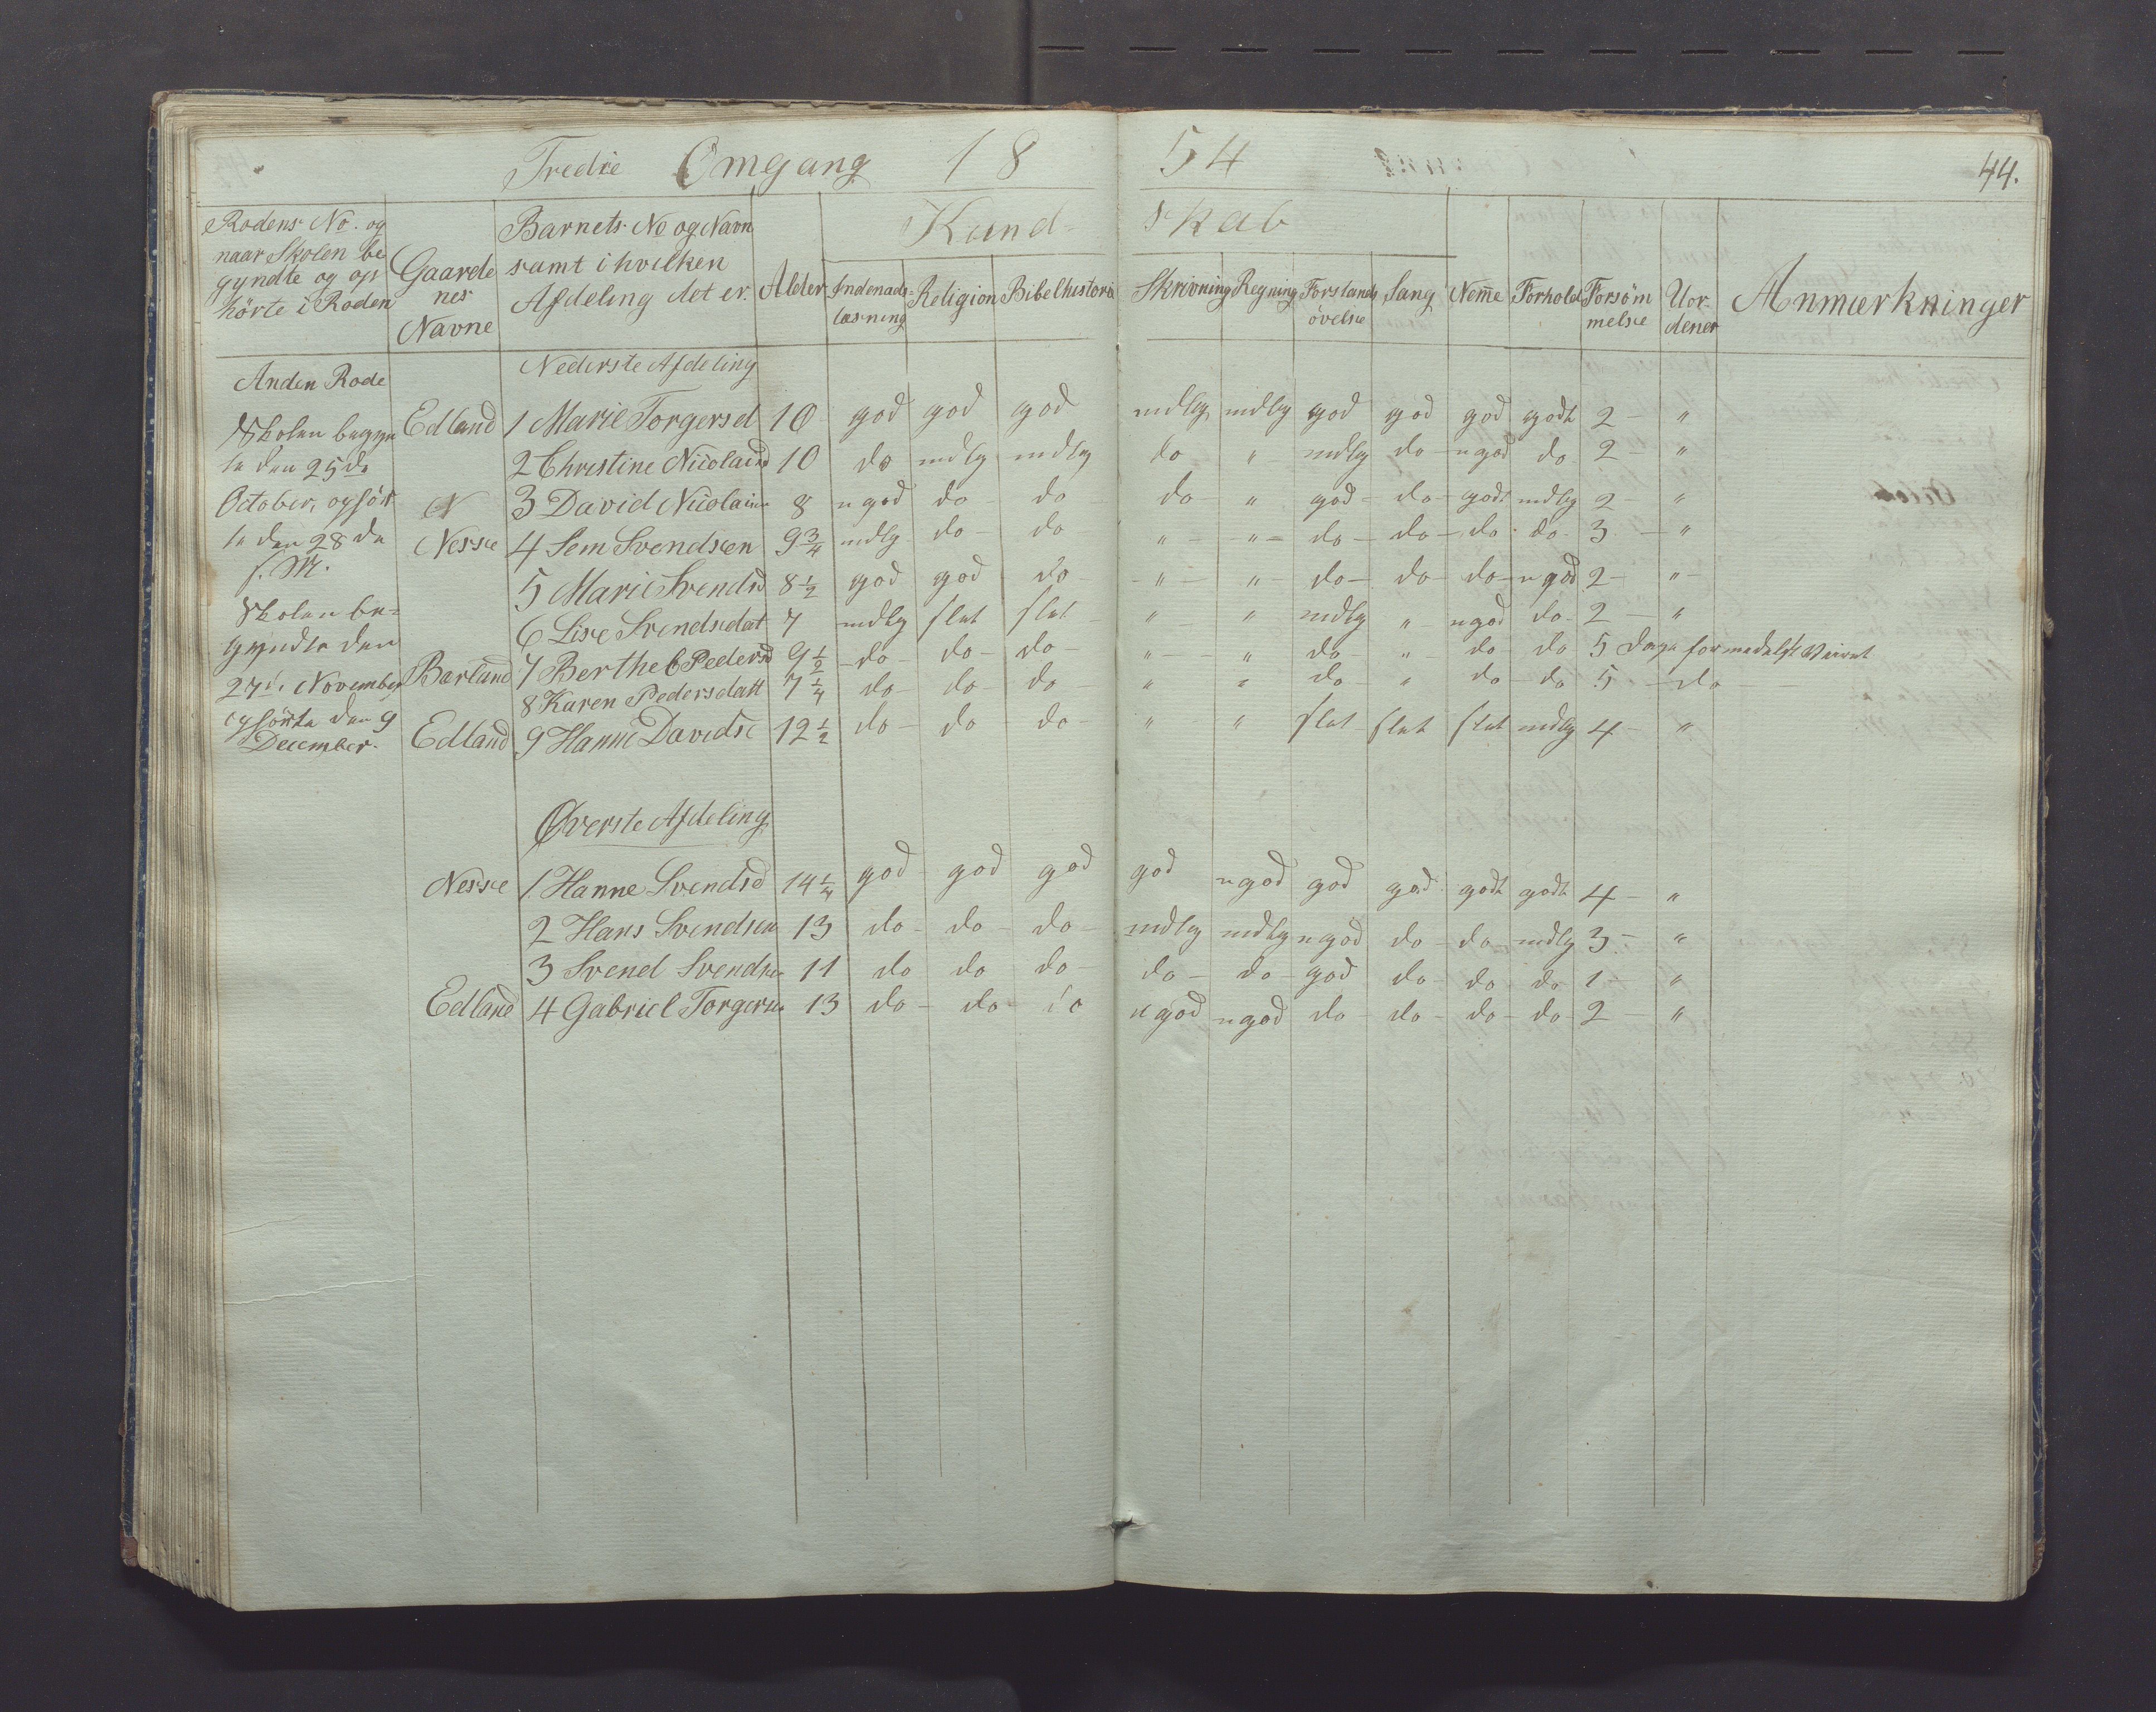 Tredie Omgang 18 54 44.
Rodens No. og naar Skolen be gyndte og op hörte i Roden
Gaarde nes Navne
Barnets No og Navn samt i hvilken Afdeling det er.
Alder
Kund- skab
Indenads- læsning
Religion
Bibelhistorie
Skrivning
Regning
Forstands övelse
Sang
Nem̄e
Forhold
Forsöm melse
Uor- dener
Anmærkninger
Anden Rode
Skolen begyn te den 25de October, ophör te den 28 de s. M.
Skolen be= gyndte den 27de November ophörte den 9 December.
Nederste Afdeling
Edland 1 Marie Torgersd 10 god god god mdlg mdlg god god god godt 2 — "
2 Christine Nicolaisd 10 do mdlg mdlg do " mdlg do — ngod do 2 — "
N 3 David Nicolaisen 8 ngod do do do — " god — do — godt mdlg 2 — "
Nesse 4 Sem Svendsen 9 3/4 mdlg do — do " — " — do — do — do do 3 — "
5 Marie Svendsd 8 1/2 god god do — " — " — do — do — do — ngod 2 — " —
6 Lise Svendsdat 7 mdlg slet slet " " mdlg " ngod do — 2 — "
Barland 7 Berthe C Pedersd 9 1/2 — do — do — do — " — " do — " — do — do 5 Dage formedelst Veiret
8 Karen Pedersdatt 7 1/4 do — do — do " " do — " do — do 5 — do —
Edland 9 Hanne Davidsd 12 1/2 do — do do — " " slet slet slet mdlg 4 — "
Øverste Afdeling
Nesse 1. Hanne Svendsd 14 1/4 god god god god ngod god god godt godt 4 — "
2 Hans Svendsen 13 do — do — do — mdlg mdlg ngod do — do — mdlg 3 — "
3 Svend Svendsen 11 do do do — do — do — god do — do do 1 — "
Edland 4 Gabriel Torgersen 13 do — do — do ngod ngod do — do — do — do — 2 — "